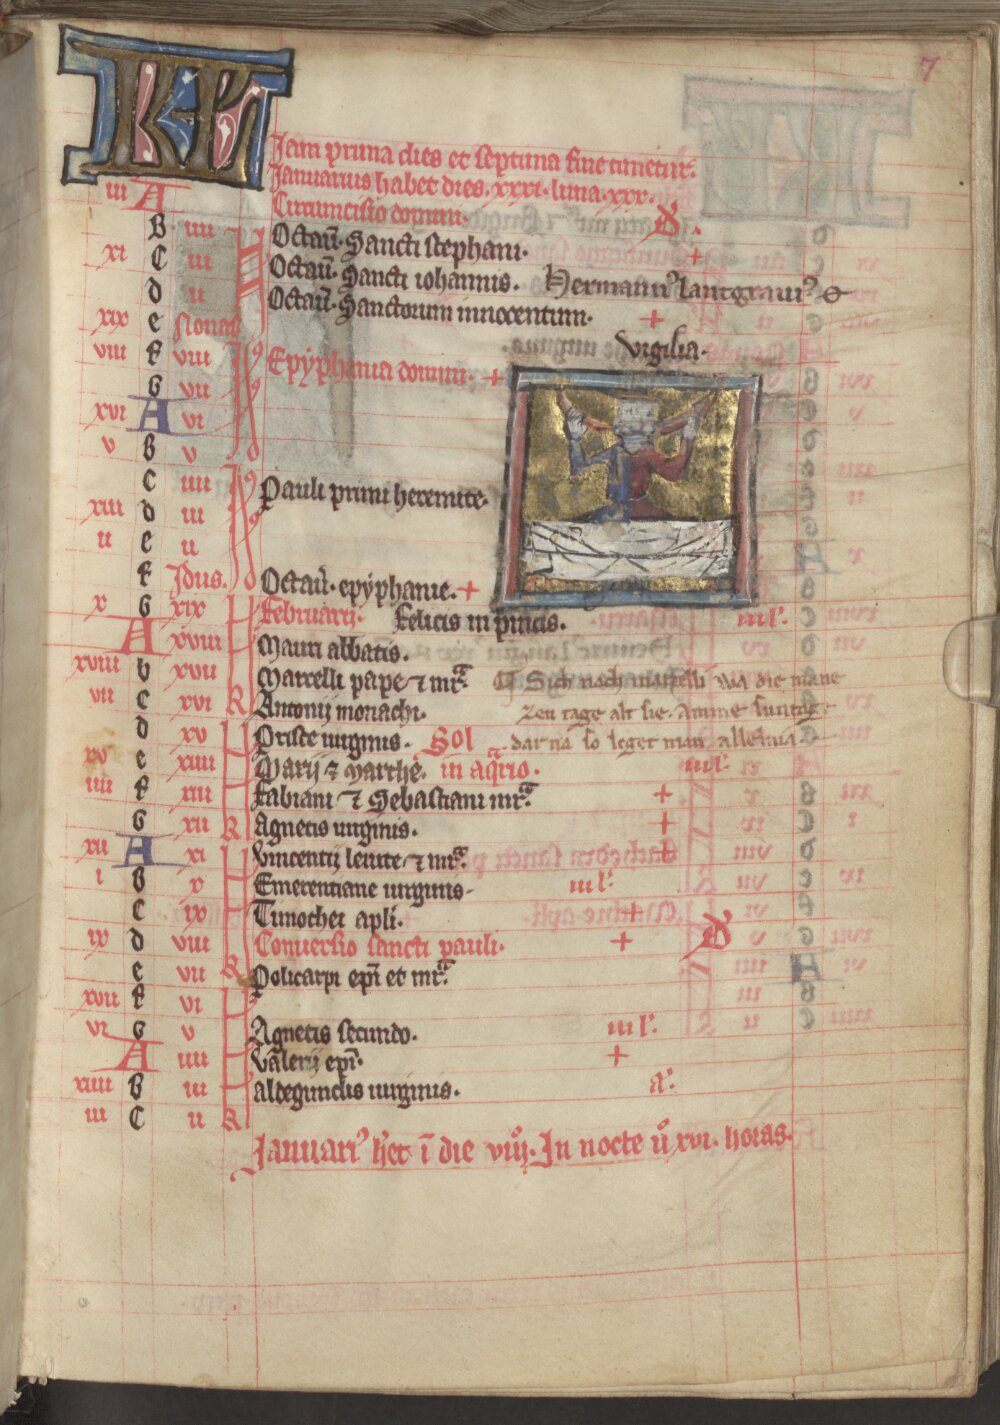 7
KL
Jani prima dies et septima fine timetur.
Januarius habet dies. xxxi. luna. xxx.
iii A Circumcisio domini. D.
B iiii Octau̅. Sancti stephani. +
xi C iii Octau̅. Sancti iohannis. Hermanni lantgrauii
d ii Octau̅. Sanctorum innocentum. +
xix e Nonas vigilia.
viii f viii Epyphania domini. +
G vii
xvi A vi
v B v
C iiii Pauli primi heremite.
xiii d iii
ii e ii
f Idus. Octau̅. epyphanie. +
x G xix Februarij. Felicis in pincis. iii l'.
A xviii Mauri abbatis.
xviii b xvii Marcelli pape ⁊ mr̅. Sich noch marcelli wa die mane
vii C xvi R Antonij monachi. Zen tage alt sie. suntage
d xv Prisce uirginis. Sol dar na so leget man alleluia
xv e xiiii Marij ⁊ Marthe. in aq̅rio. iii l'.
iiii f xiii Fabiani ⁊ Sebastiani mr̅. +
G xii R Agnetis uirginis. +
xii A xi Vincentij leuite ⁊ mr̅. +
i B x Emerentiane uirginis. iii l'.
C ix Timothei apl̅i. +
ix d viii Conuersio sancti pauli. + D
e vii R Policarpi ep̅i et mr̅.
xvii f vi
vi G v Agnetis secundo. iii l'.
A iiii Valerij ep̅i. +
xiiii B iii Aldegundis uirginis. a'.
iii C ii R
Januari' h'et i̅ die viii. In nocte ů xvi. horas.